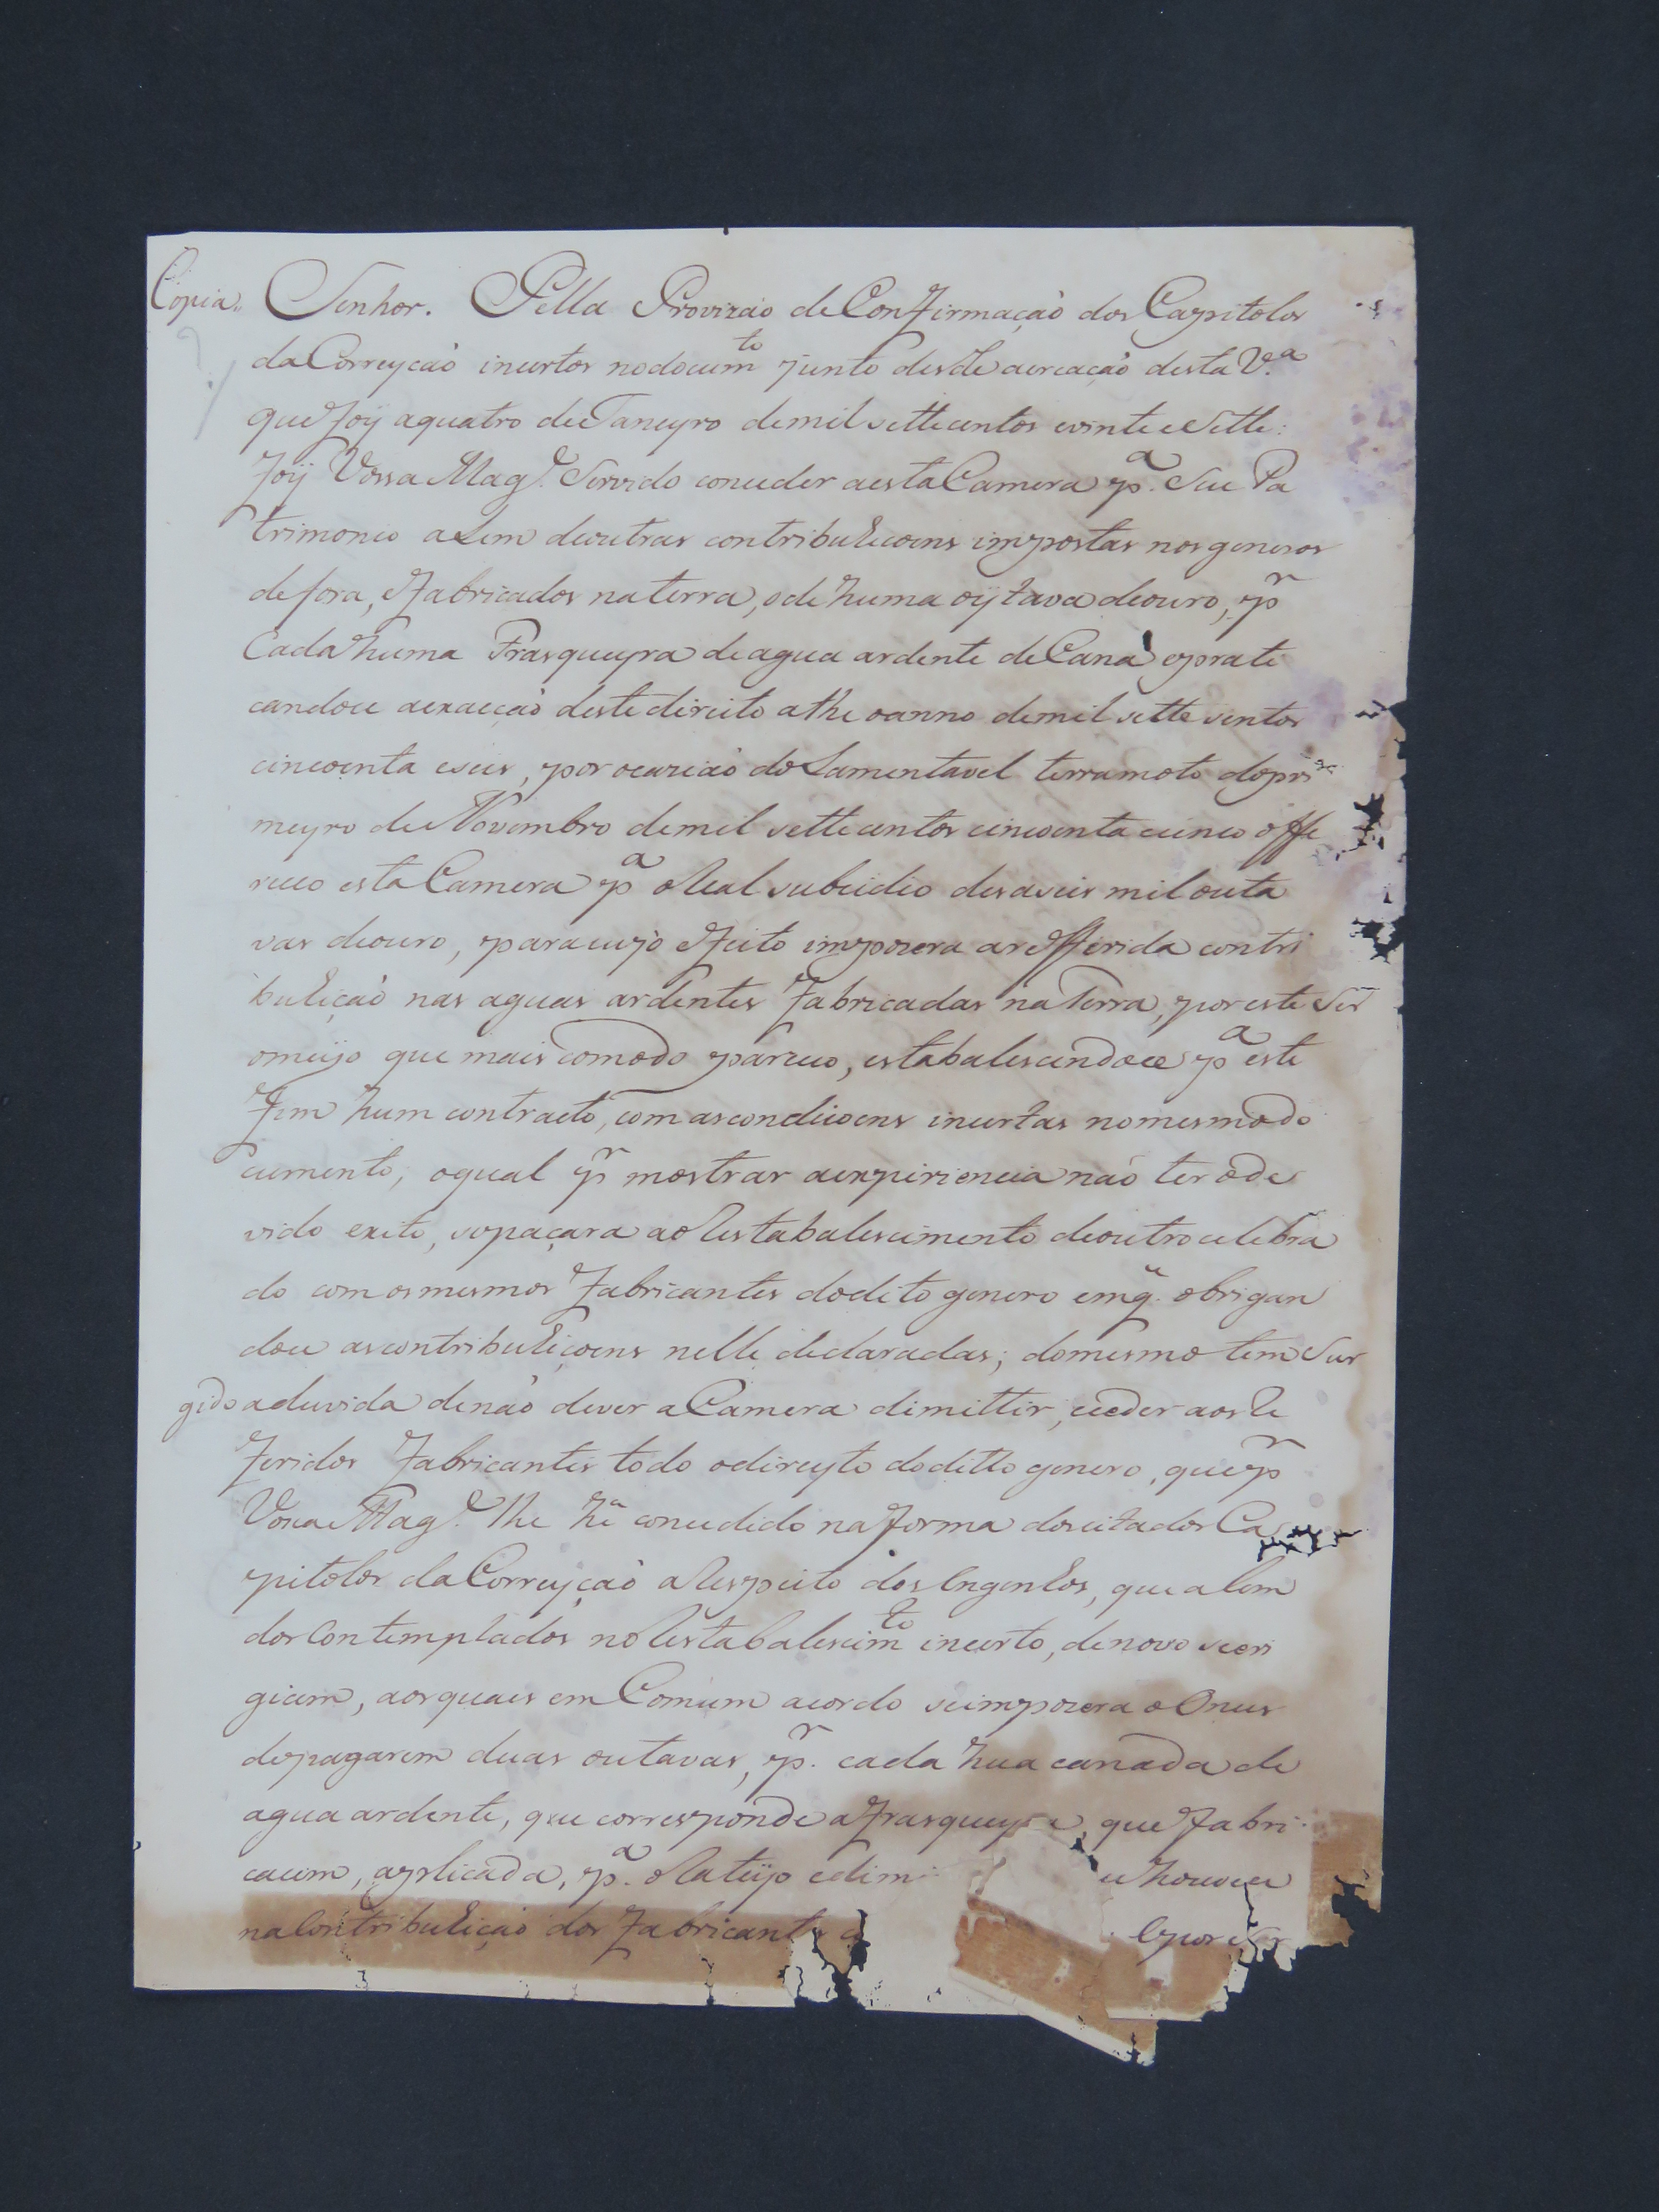 Copia. Senhor. Pella Provizaõ de Confirmaçaõ dos Capitolos
da Correyçaõ incertos no docum.to junto desde a creaçaõ desta V.a
que foy a quatro de Janeyro de mil settecentos e vinte e sette:
foy Vossa Mag.e Servido conceder a esta Camera p.a Seu Pa
trimonio alem de outras contribuhicoens impostas nos generos
de fora, e fabricados na terra, o de huma oytava de ouro, p.r
Cada huma Frasqueyra de agua ardente de Cana e prati
candoce a exacçaõ deste direito athe o anno de mil sette sentos
cincoenta e seis, por ocaziaõ do Lamentavel terramoto do pri
meyro de Novembro de mil sette centos cincoenta e cinco offe
receo esta Camera p.a o Real subcidio desaseis mil outa
vas de ouro, para cujo efeito impozera a refferida contri
buhiçaõ nas aguas ardentes fabricadas na Terra, por este Ser
o meyo que mais comodo pareceo, estabalescendoce p.a este
fim hum contracto, com as condicoens incertas no mesmo do
cumento, o qual p.r mostrar a expiriencia naõ ter o de
vido exito, se paçara ao Restabalescimento de outro celebra
do com os mesmos fabricantes do dito genero em q. obrigan
doce as contribuhiçoens nelle declaradas; do mesmo tem Sur
gido a duvida de naõ dever a Camera dimittir, e ceder aos Re
feridos fabricantes todo o direyto do ditto genero, que p.r
Vossa Mag.e lhe hé concedido na forma dos citados Ca
pitolos da Correyçaõ a Respeito dos Engenhos, que alem
dos Contemplados no Restabalescim.to incerto, de novo se eri
giam, aos quaes em Comum acordo se impozera o Onus
de pagarem duas outavas, p.r cada hua canada de
agua ardente, que corresponde a frasqueyra, que fabri
cacem, aplicada, p.a o Rateyo e dim houvece
na Contribuhiçaõ dos fabricant